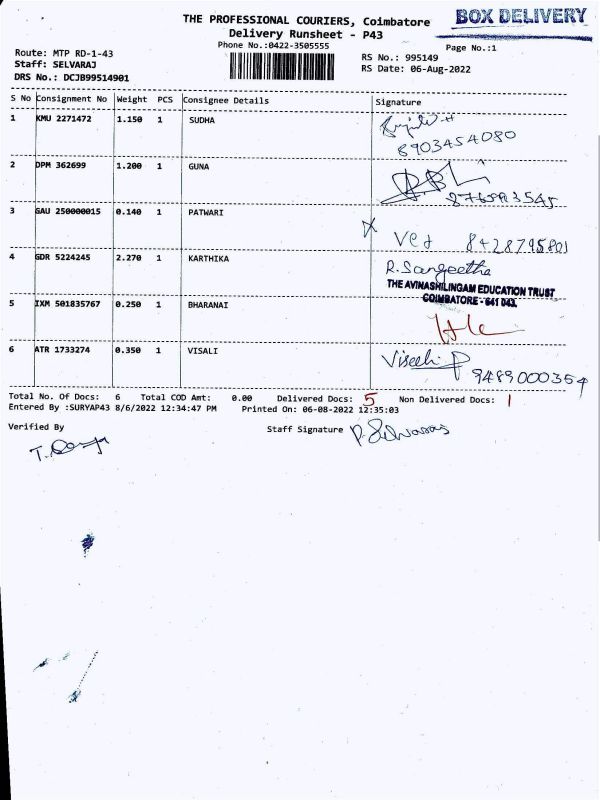 THE PROFESSIONAL COURIERS, Coimbatore
BOX DELIVERY
Delivery Runsheet - P43
Phone No.:0422-3505555
Page No.:1
Route: MTP RD-1-43
RS No.: 995149
Staff: SELVARAJ
RS Date: 06-Aug-2022
DRS No.: DCJB99514901
S No Consignment No Weight PCS Consignee Details Signature
1 KMU 2271472 1.150 1 SUDHA
8903454080
2 DPM 362699 1.200 1 GUNA
3 GAU 250000015 0.140 1 PATWARI
Ved 8428795801
4 GDR 5224245 2.270 1 KARTHIKA R.Sangeetha
THE AVINASHILINGAM EDUCATION TRUST
COIMBATORE - 641 043.
5 IXM 501835767 0.250 1 BHARANAI
6 ATR 1733274 0.350 1 VISALI
9489000354
Total No. Of Docs: 6 Total COD Amt: 0.00 Delivered Docs: 5 Non Delivered Docs: 1
Entered By :SURYAP43 8/6/2022 12:34:47 PM Printed On: 06-08-2022 12:35:03
Verified By Staff Signature P. Selvaraj